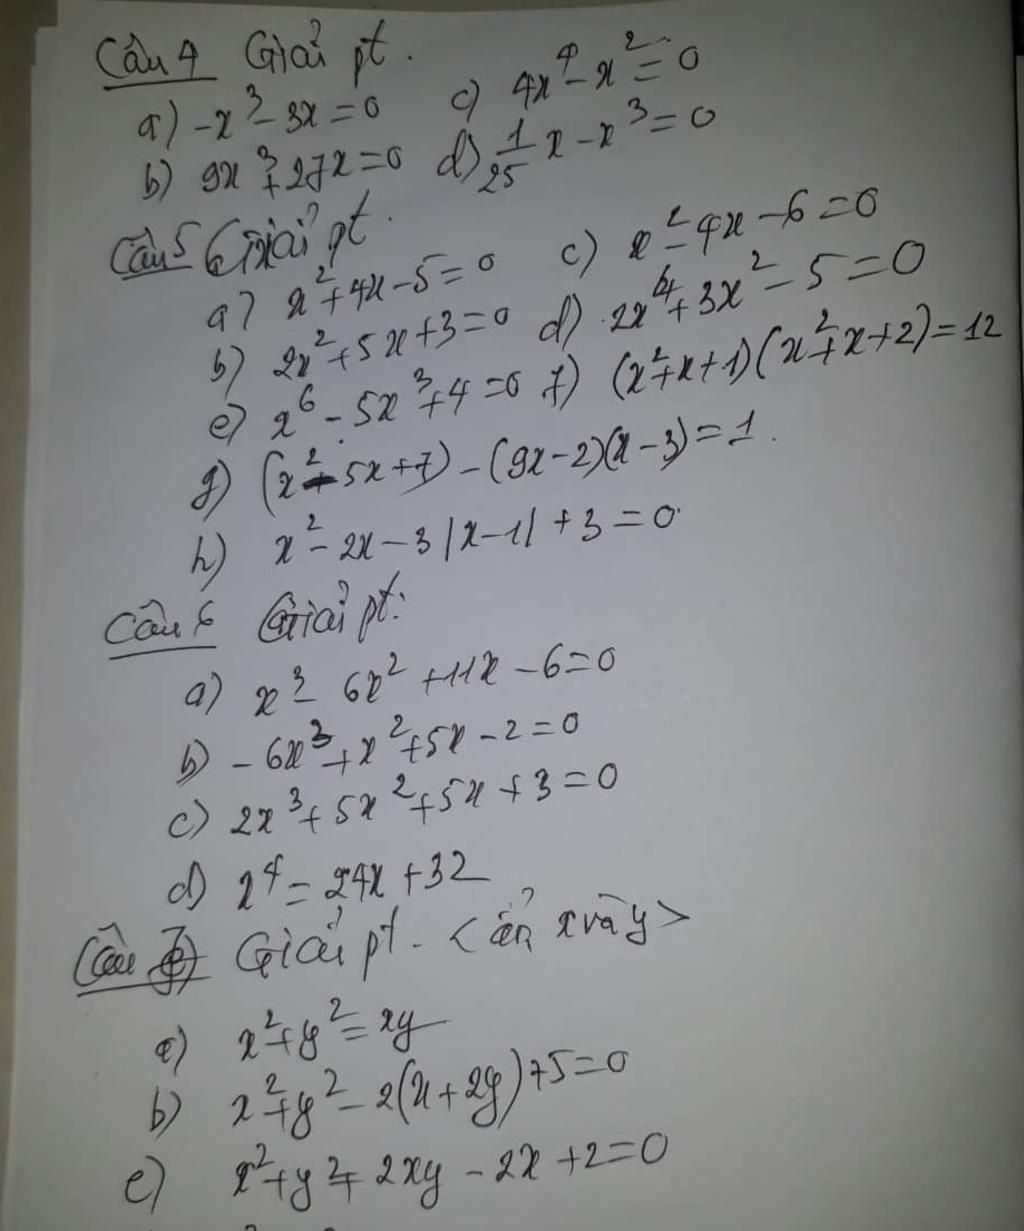 Câu 4 Giải pt.
a) -x³ - 3x = 0 c) 4x⁴ - x² = 0
b) 9x³ + 27x = 0 d) 1/25 x - x³ = 0
Câu 5 Giải pt.
a) x² + 4x - 5 = 0 c) x² - 4x - 6 = 0
b) 2x² + 5x + 3 = 0 d) 2x⁴ + 3x² - 5 = 0
e) x⁶ - 5x³ + 4 = 0 f) (x² + x + 1)(x² + x + 2) = 12
g) (x² - 5x + 7) - (9x - 2)(x - 3) = 1.
h) x² - 2x - 3|x - 1| + 3 = 0
Câu 6 Giải pt:
a) x³ - 6x² + 11x - 6 = 0
b) -6x³ + x² + 5x - 2 = 0
c) 2x³ + 5x² + 5x + 3 = 0
d) x⁴ = 24x + 32
Câu 7) Giải pt. <ẩn x và y>
a) x² + y² = xy
b) x² + y² - 2(x + 2y) + 5 = 0
c) x² + y² + 2xy - 2x + 2 = 0